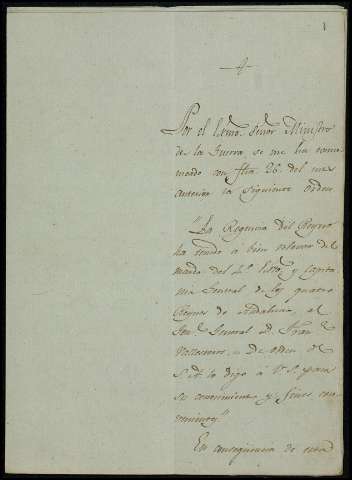 1
Por el Exmo. Señor Ministro
de la Guerra se me ha comu
nicado con fha 26 del mes
anterior la siguiente orden
"La Regencia del Reyno
ha tenido á bien relevar del
mando del 4.º Extº y Capita
nia General de los quatro
Reynos de Andalucia, al
Ten.e General D. Fran.co
Vallesteros, = De orden de
S.A. lo digo á V.S. para
su conocimiento y fines con
En conseqüencia de esta